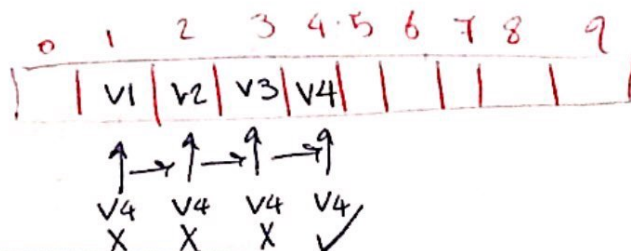 0 1 2 3 4 5 6 7 8 9
V1 V2 V3 V4
V4 V4 V4 V4
X X X ✓